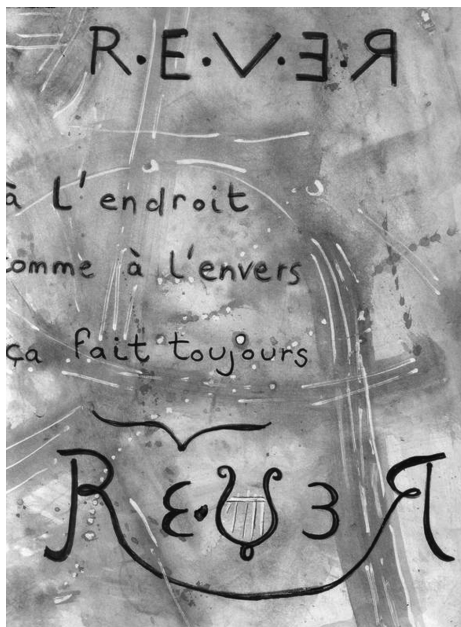 R.E.V.E.R
à l'endroit
comme à l'envers
ça fait toujours
RE.VER